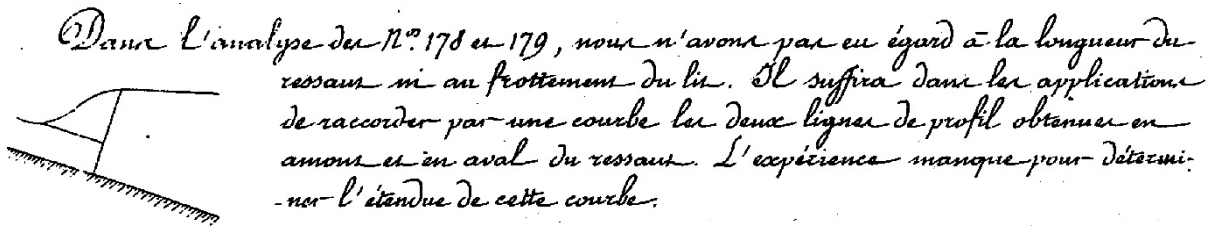 Dans l'analyse des Nos 178 et 179, nous n'avons pas eu égard à la longueur du
ressaut ni au frottement du lit. Il suffira dans les applications
de raccorder par une courbe les deux lignes de profil obtenues en
amont et en aval du ressaut. L'expérience manque pour détermi-
-ner l'étendue de cette courbe.